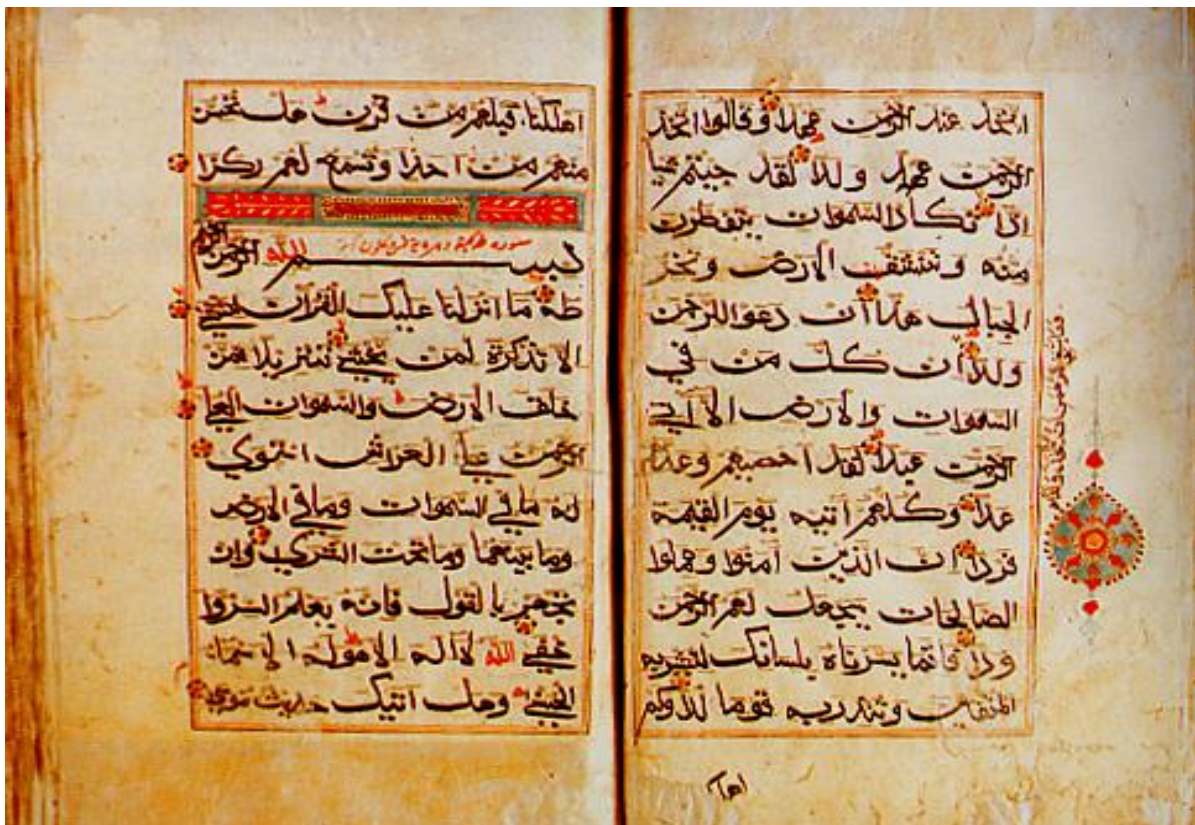 اتخذ عند الرحمن عهدا وقالوا اتخذ
الرحمن ولدا لقد جيتم شيا
ادا تكاد السموات يتفطرن
منه وتنشق الارض وتخر
الجبال هدا ان دعوا للرحمن
ولدا ان كل من في
السموات والارض الا اتي
الرحمن عبدا لقد احصيهم وعدهم
عدا وكلهم اتيه يوم القيمة
فردا ان الذين امنوا وعملوا
الصالحات سيجعل لهم الرحمن
ودا فانما يسرناه بلسانك لتبشر به
المتقين وتنذر به قوما لدا وكم
اهلكنا قبلهم من قرن هل تحس
منهم من احد او تسمع لهم ركزا
سورة طه مكية
بسم الله الرحمن الرحيم
طه ما انزلنا عليك القران لتشقي
الا تذكرة لمن يخشي تنزيلا ممن
خلق الارض والسموات العلي
الرحمن علي العرش استوي
له ما في السموات وما في الارض
وما بينهما وما تحت الثري وان
تجهر بالقول فانه يعلم السر وا
خفي الله لا اله الا هو له الاسماء
الحسني وهل اتيك حديث موسي